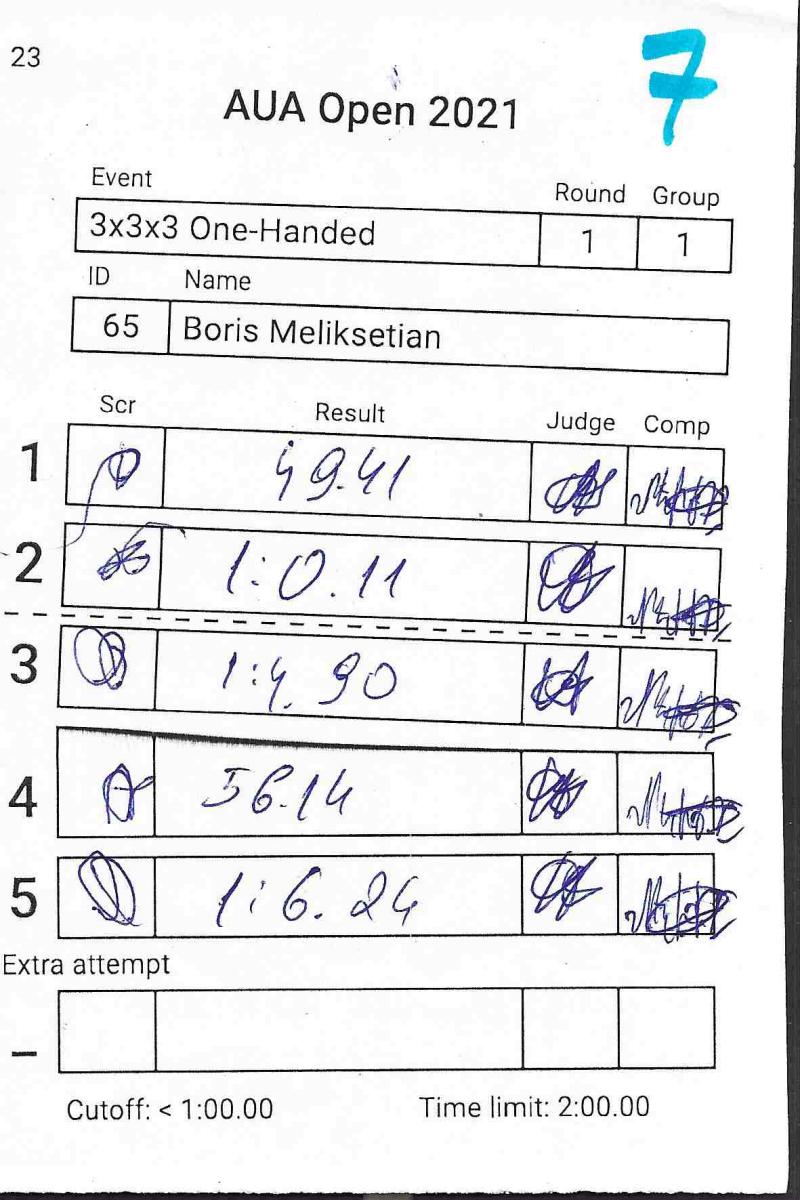 23
7
AUA Open 2021
Event Round Group
3x3x3 One-Handed 1 1
ID Name
65 Boris Meliksetian
Scr Result Judge Comp
1 49.41
2 1:0.11
3 1:4.90
4 56.14
5 1:6.24
Extra attempt
–
Cutoff: < 1:00.00 Time limit: 2:00.00